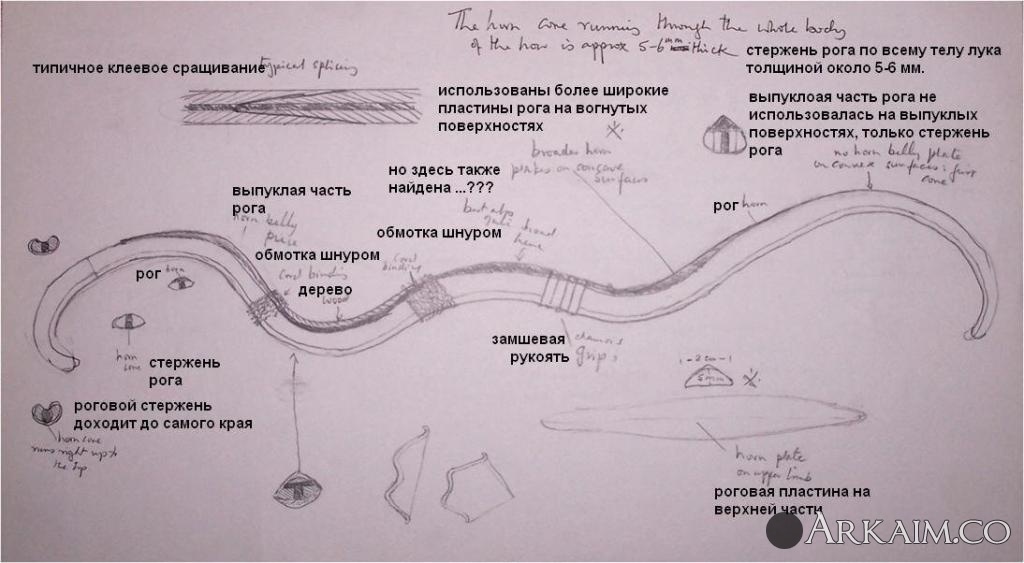 The horn core running through the whole body
of the bow is approx 5-6 mm thick
стержень рога по всему телу лука
толщиной около 5-6 мм.
типичное клеевое сращивание
typical splicing
использованы более широкие
пластины рога на вогнутых
поверхностях
broader horn
plates on concave
surfaces
выпуклоая часть рога не
использовалась на выпуклых
поверхностях, только стержень
рога
no horn belly plate
on convex surfaces: just
core
но здесь также
найдена ...???
but also
here
выпуклая часть
рога
horn belly
piece
рог horn
обмотка шнуром
cord
binding
обмотка шнуром
cord binding
дерево
wood
рог horn
замшевая
рукоять
chamois
grip
horn
core
стержень
рога
роговой стержень
доходит до самого края
horn core
runs right up to
the tip
1-2cm-1
5mm
horn plate
on upper limb
роговая пластина на
верхней части
ARKAIM.CO